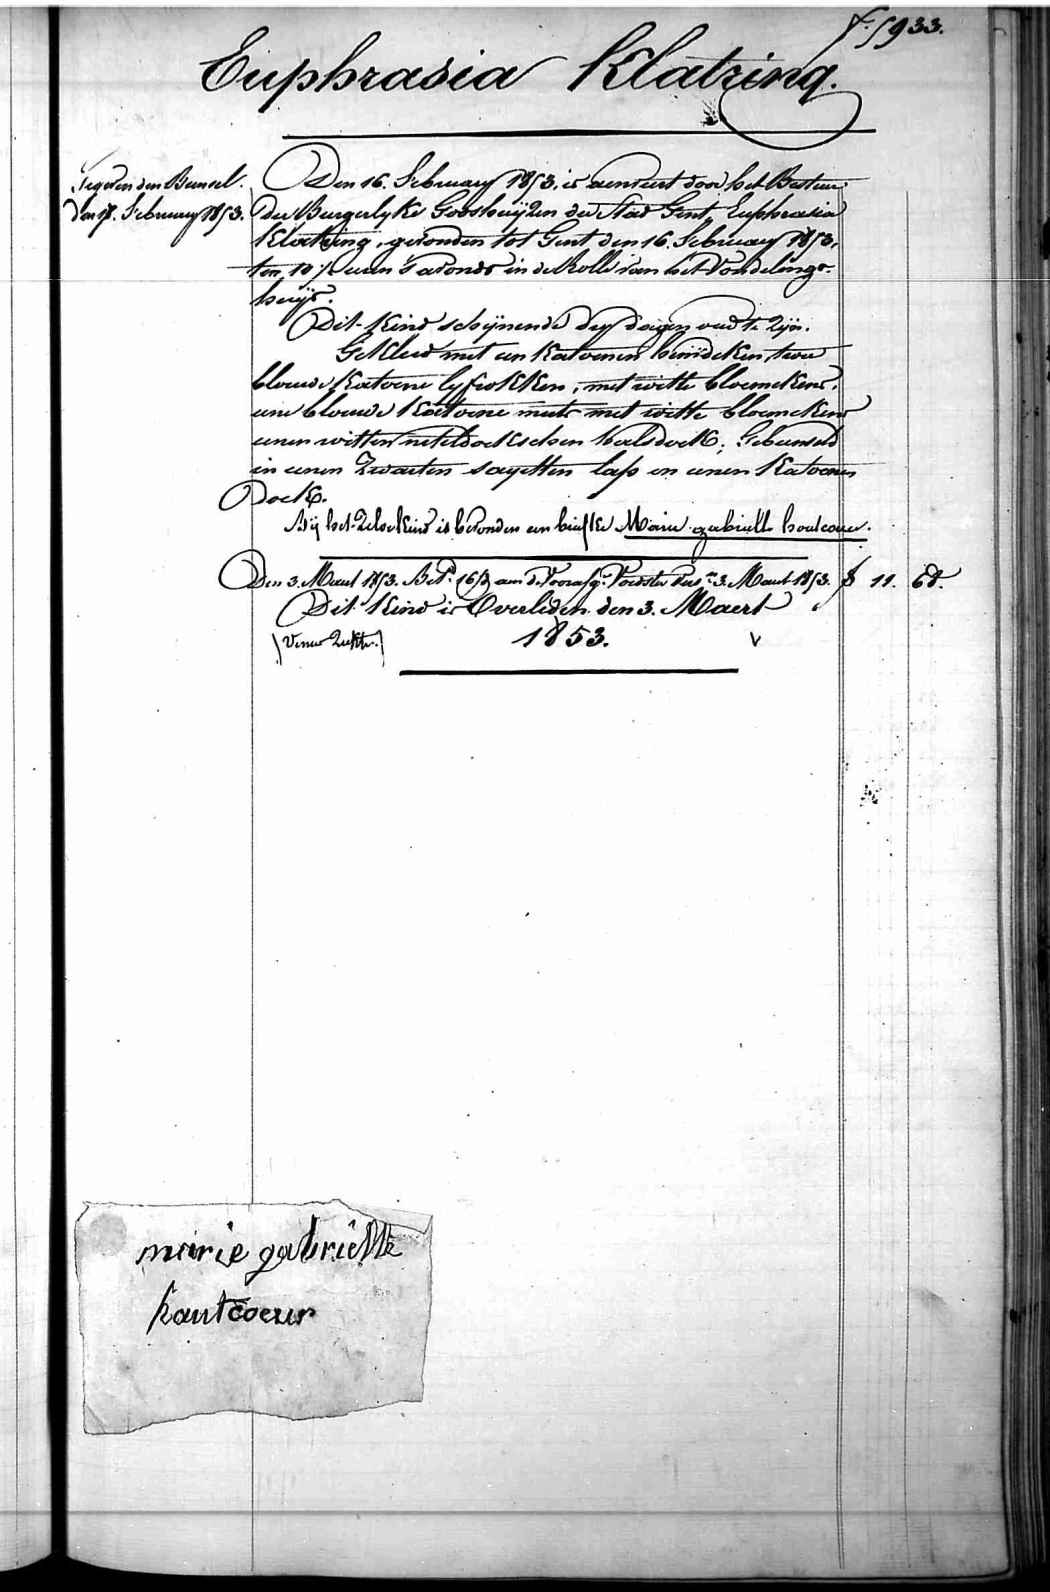 f. 5933.
Euphrasia Klatzing.
Den 16. February 1853. is aenveert door het Bestuer
den 17. February 1853.
Der Burgerlyke Godshuyzen der Stad Gent, Euphrasia
Klatzing, gevonden tot Gent den 16. February 1853,
ten 10 ½ uren 's avonds in de Rolle van het Vondelings-
huys.
Dit Kind schynende dry dagen oud te zyn.
Gekleed met een Katoenen hemdeken, twee
blauwe Katoene lyfrokken, met witte bloemekens,
eene blauwe Katoene muts met witte bloemekens
eenen witten neteldoekschen halsdoek; Gebunseld
in eenen zwarten sayetten lap en eenen Katoenen
Doek.
Bij het zelve Kind is bevonden een briefke Marie gabrielle hautcoeur.
Den 3. Maert 1853. Bet. 16/3 aen de Voorsz. Voedster 3. Maert 1853. f 11. 68.
Dit Kind is Overleden den 3. Maert
1853.
marie gabrielle
hautcoeur